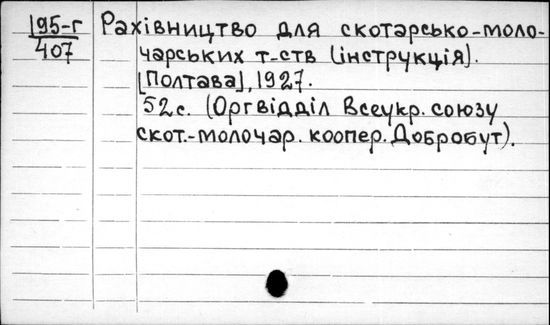 195-г
407
Рахівництво для скотарсько-моло-
чарських т-ств (інструкція).
[Полтава], 1927.
52с. (Оргвідділ Всеукр. союзу
скот.-молочар. коопер. Добробут).